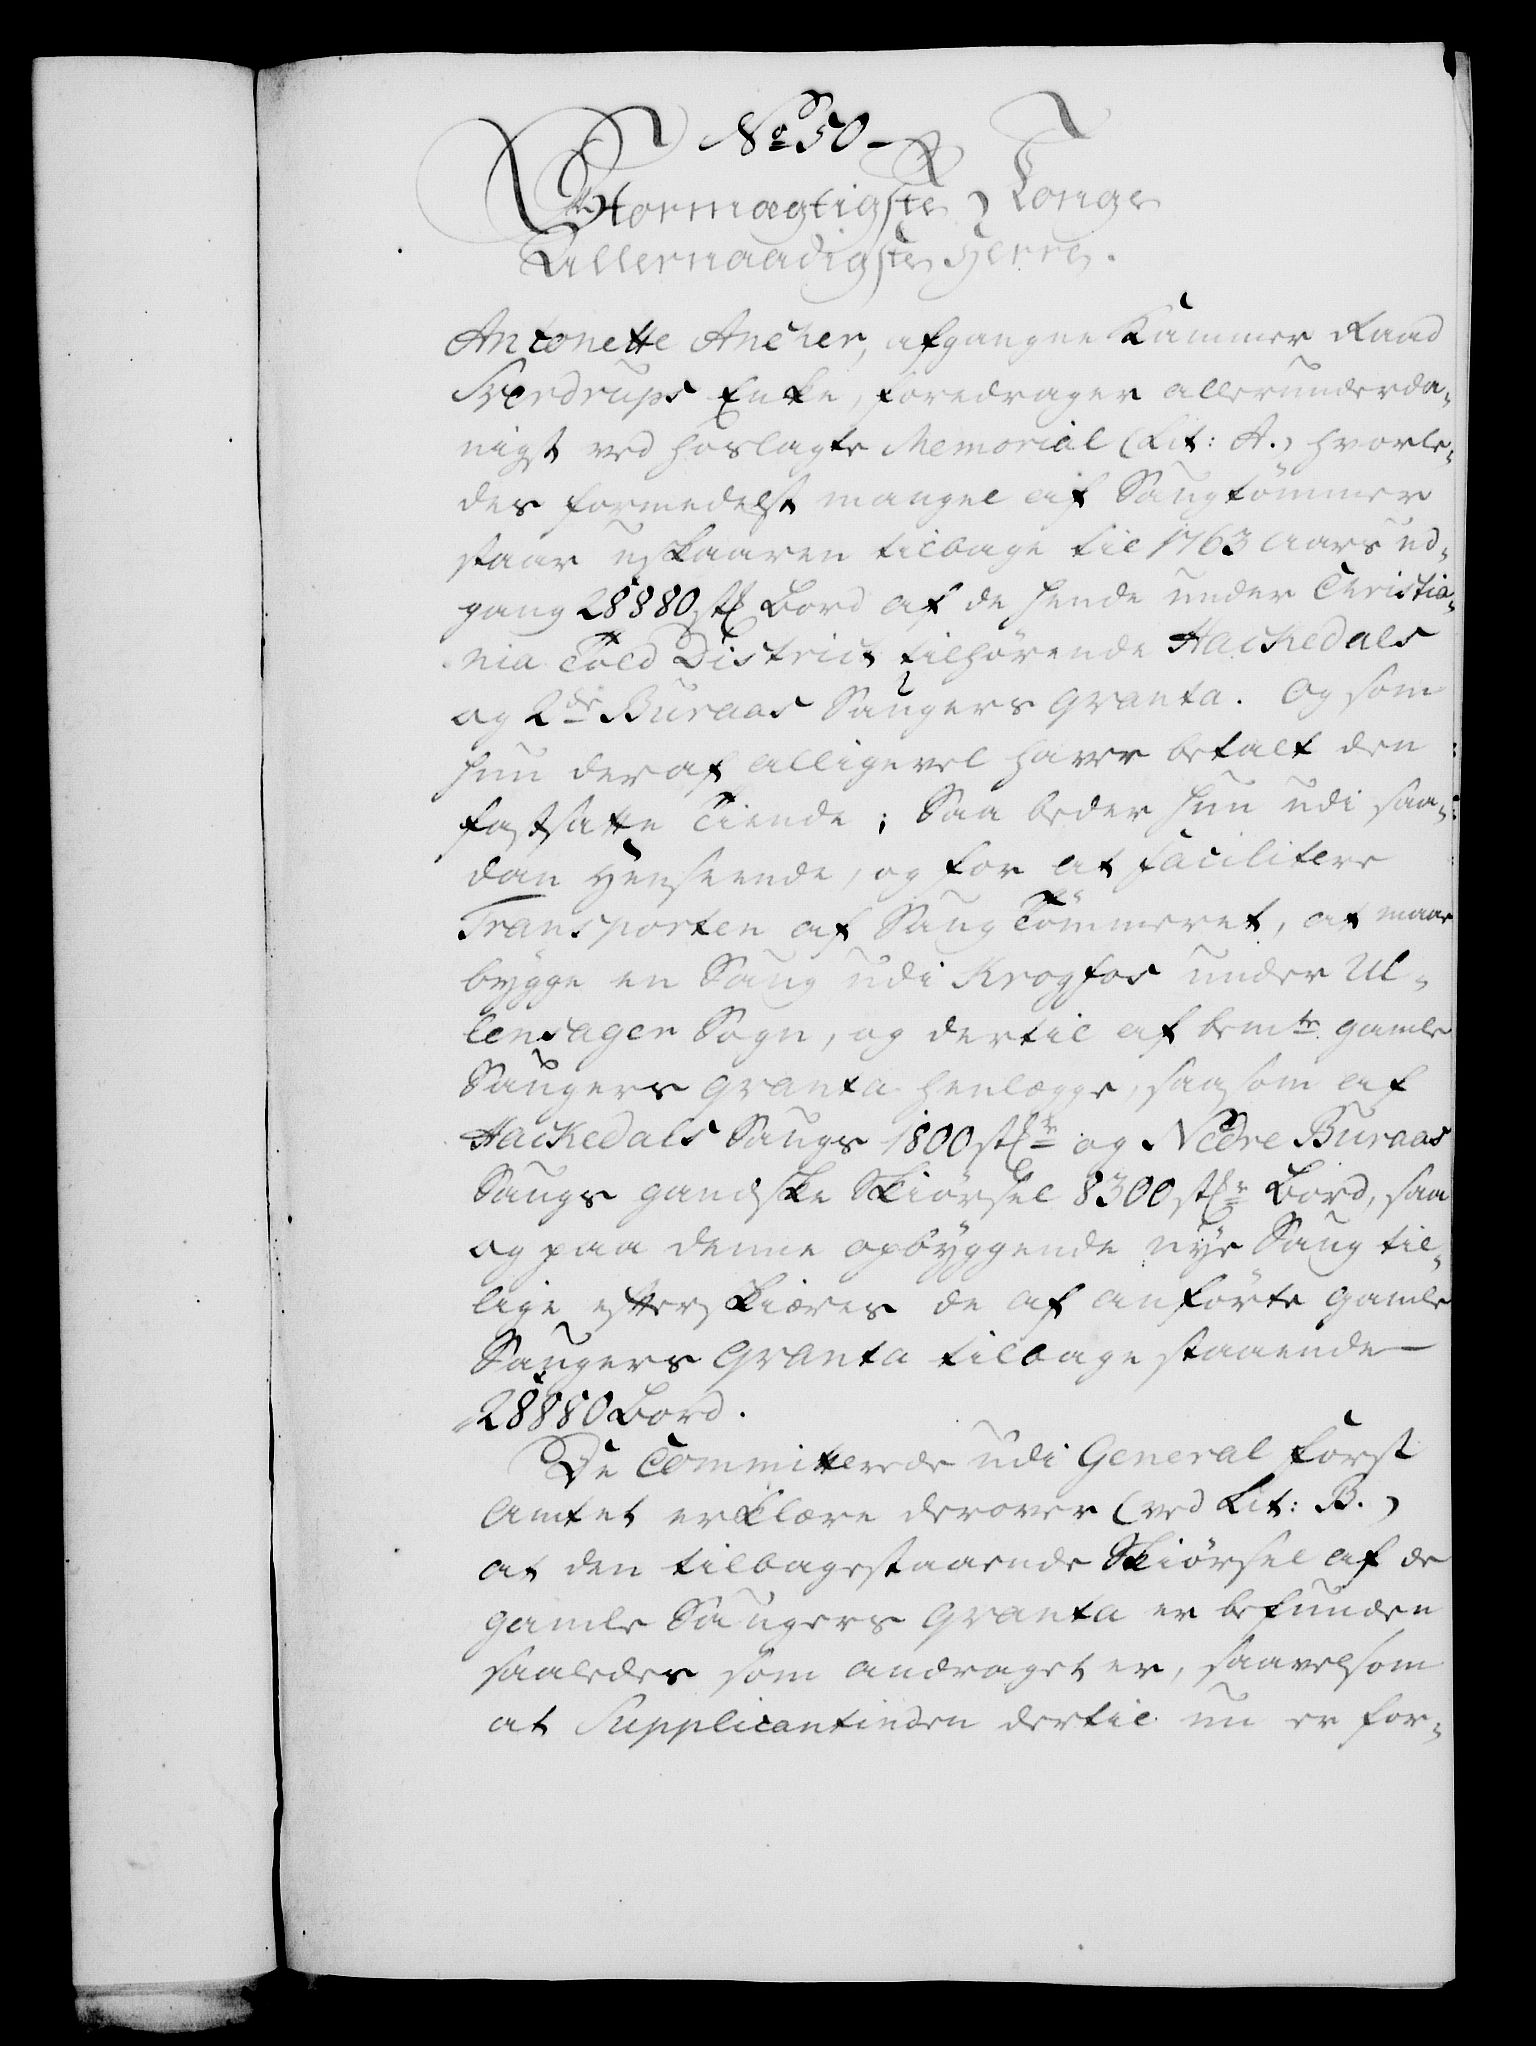 No 50
Stormægtigste Konge
Allernaadigste Herre.
Antonette Ancher, afgangne Kammer Raad
Sverdrups Enke, foredrager allerunderda-
nigst ved hoslagte Memorial (Lit: A.) hvorle-
des formedelst mangel af Saugtömmer
staar uskaaren tilbage til 1763 Aars ud-
gang 28880 stk Bord af de hende under Christia-
nia Told District tilhørende Hackedals
og 2de Buraas Saugers Qvanta. Og som
hun deraf alligevel haver betalt den
fastsatte Tiende; Saa beder hun udi saa-
dan Henseende, og for at facilitere
Transporten af Saug Tömmeret, at maae
bygge en Saug udi Krogfos under Ul-
lensager Sogn, og dertil af bemte gamle
Saugers Qvanta henlægge, saasom af
Hackedals Saugs 1800 stkr og Nedre Buraas
Saugs gandske Skiørsel 8300 stkr Bord, saa
og paa denne opbyggende nye Saug til-
lige efterskiæres de af anførte gamle
Saugers Qvanta tilbage staaende
28880 Bord.
De Committerede udi General Forst
Amtet erklære derover (ved Lit: B.)
at den tilbagestaaende Skiørsel af de
gamle Saugers Qvanta er befunden
saaledes som andraget er, saavelsom
at Supplicantinden dertil nu er for-